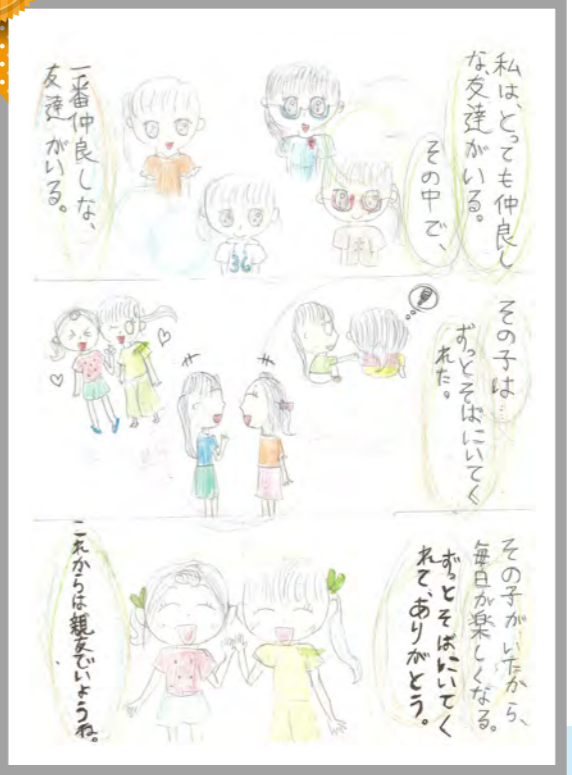 私は、とっても仲良し
な、友達がいる。
その中で、
一番仲良しな、
友達がいる。
その子は…
ずっとそばにいてく
れた。
その子が、いたから、
毎日が楽しくなる。
ずっとそばにいてく
れて、ありがとう。
これからは親友でいようね。
36